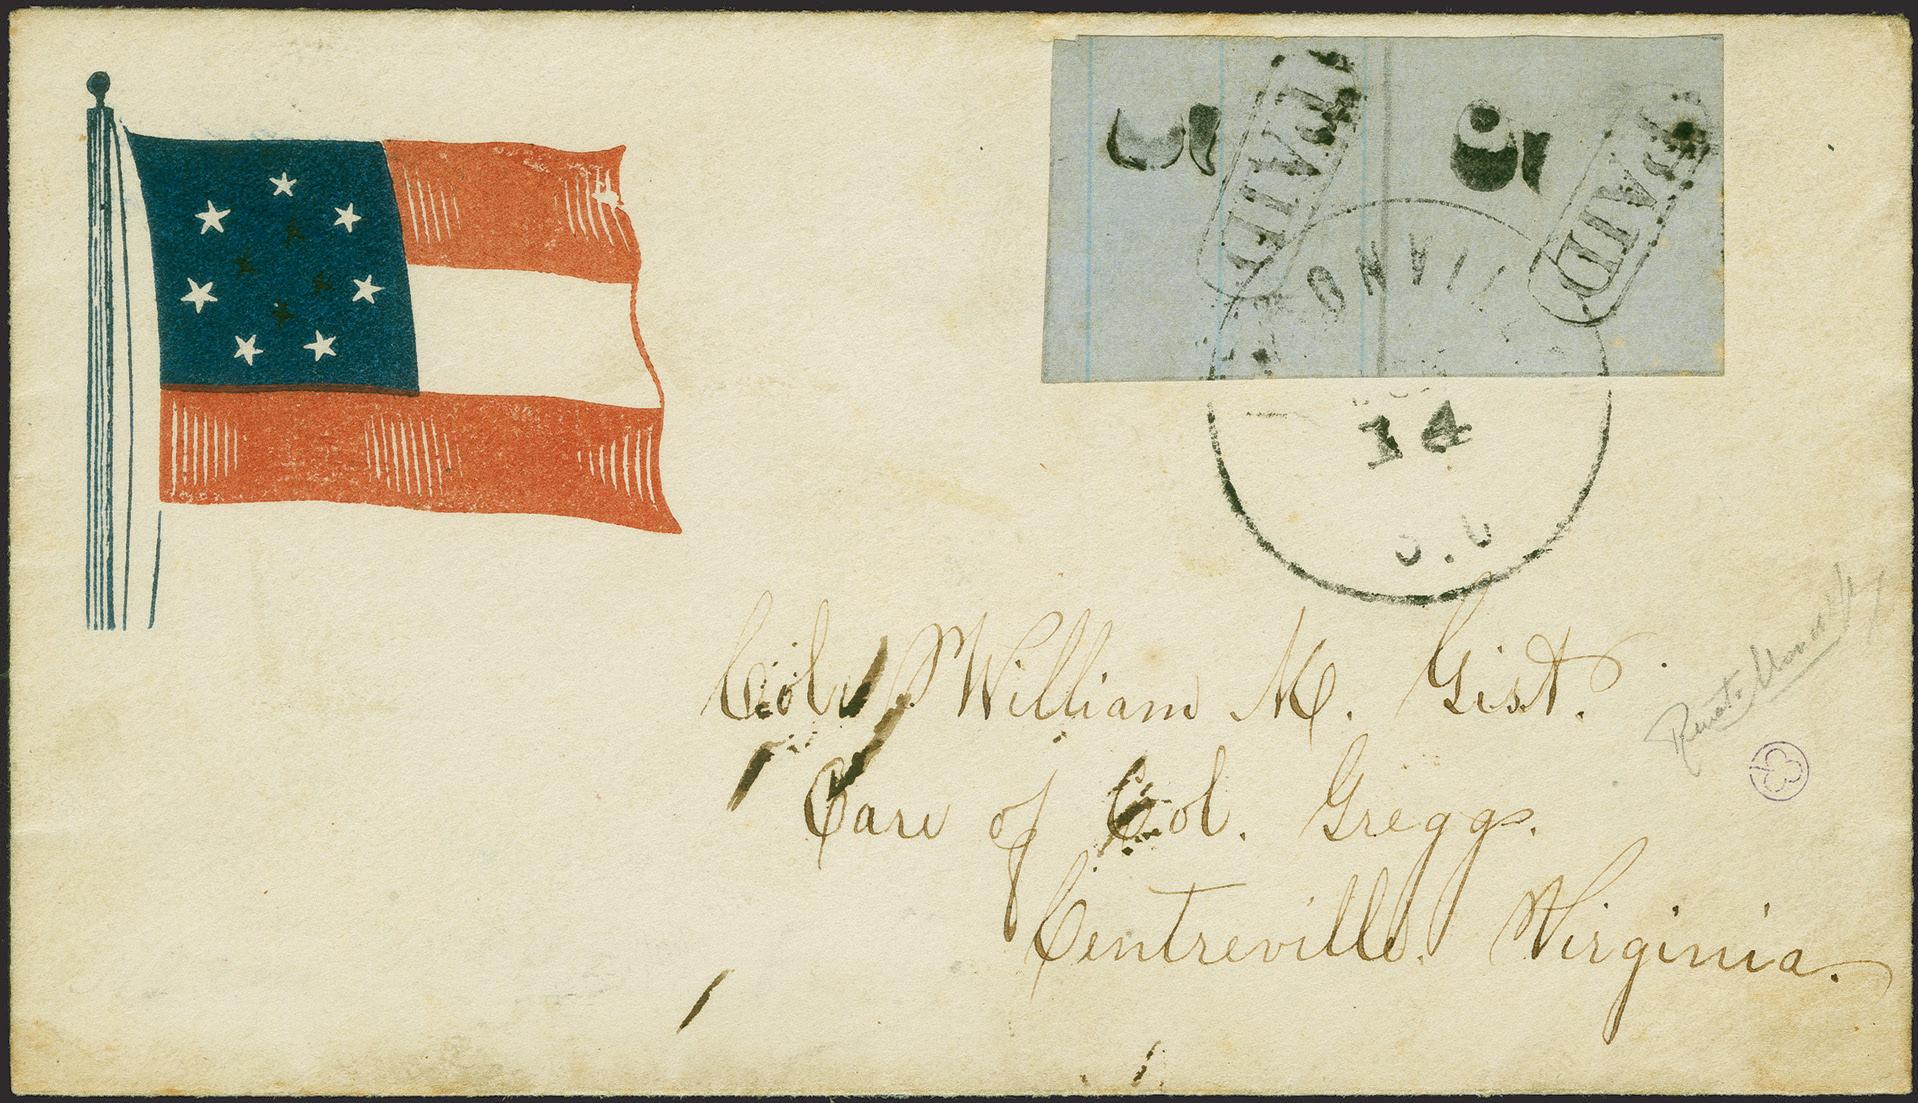 5 PAID 5 PAID
14
Col. William M. Gist.
Care of Col. Gregg.
Centreville. Virginia.